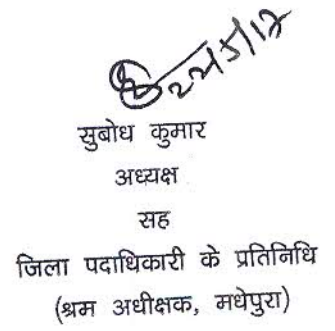 22/5/17
सुबोध कुमार
अध्यक्ष
सह
जिला पदाधिकारी के प्रतिनिधि
(श्रम अधीक्षक, मधेपुरा)